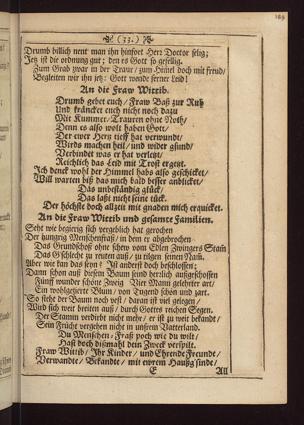 (33.)
Drumb billich nent man ihn hinfort Herr Doctor selig;
Jetz ist die ordnung gut; den es Gott so gefellig.
Zum Grab zwar in der Traur / zum Himel doch mit freud /
Begleiten wir ihn jetz: Gott wende ferner Leid!
An die Fraw Wittib.
Drumb gebet euch / Fraw Baß zur Ruh
Und kräncket euch nicht noch dazu
Mit Kummer / Trauren ohne Noth /
Denn es also wolt haben Gott /
Der ewer Hertz tieff hat verwundt /
Wirds machen heil / und wider gsund /
Verbindet was er hat verletzt /
Reichlich das Leid mit Trost ergetzt.
Ich denck wohl der Himmel habs also geschicket /
Will warten biß das mich bald besser anblicket /
Das unbeständig glück /
Das laßt nicht seine tück.
Der höchste doch allzeit mit gnaden mich erquicket.
An die Fraw Wittib und gesamte Familien.
Seht wie begierig sich vergeblich hat gerochen
Der hungrig Menschenfraß / in dem er abgebrochen
Das Grundschoß ohne schew vom Edlen Zwingers Stam
Das Gschlecht zu reuten auß / zu tilgen seinen Nam.
Aber wie kan das seyn? Ist anderst doch beschlossen;
Dann schon auß diesem Baum seind herrlich außgeschossen
Fünff wunder schöne Zweig Vier Mann gelehrter art /
Ein wohlgezierte Blum / von Tugend schön und zart.
So steht der Baum noch vest / daran ist viel gelegen /
Wird sich weit breiten auß / durch Gottes reichen Segen.
Der Stamm verdirbt nicht mehr / er ist zu weit bekandt /
Sein Frücht vergehen nicht in unsrem Vatterland.
Du Menschen-Fraß poch wie du wilt /
Hast doch dißmahl dein Zweck verspilt.
Fraw Wittib / Ihr Kinder / und Ehrende Freundt /
Verwandte / Bekandte / mit ewrem Haußg'sinde /
E
All